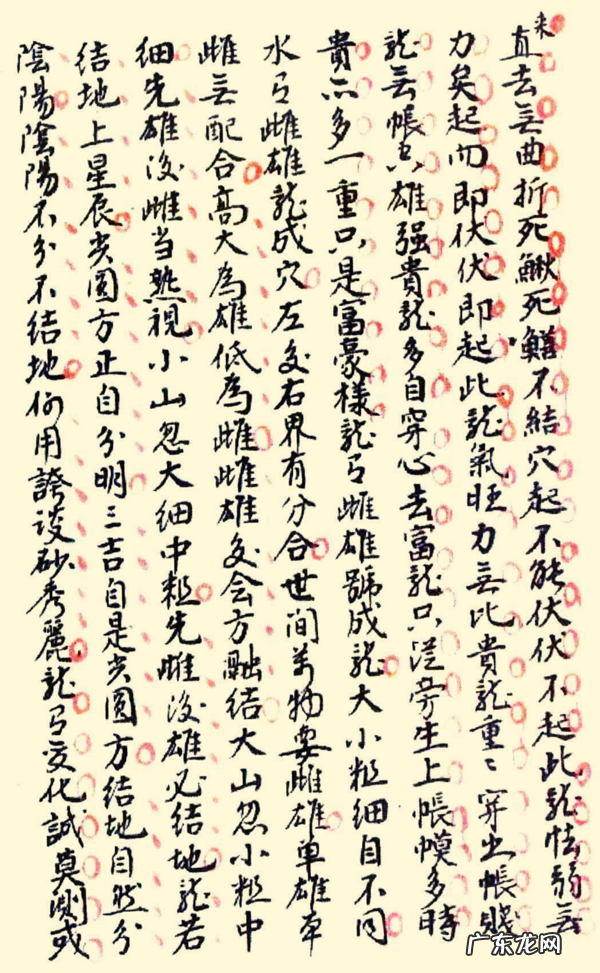 来
直去无曲折死鳅死鳝不结穴起不能伏伏不起此龙怯弱无
力矣起而即伏伏即起此龙氣旺力无比貴龙重〻穿出帳賤
龙无帳只雄强貴龙多自穿心去富龙只從旁生上帳幙多時
貴只多一重只是富豪樣龙有雌雄號成龙大小粗细自不同
水有雌雄龙成穴左交右界有分合世间萬物要雌雄单雄单
雌无配合高大為雄低為雌雌雄交会方融结大山忽小粗中
细先雄後雌当熟視小山忽大细中粗先雌後雄必结地龙若
结地上星辰尖圆方正自分明三吉自是尖圆方结地自然分
陰陽陰陽不分不结地何用誇谈砂秀麗龙有变化誠莫测或
广东龙网